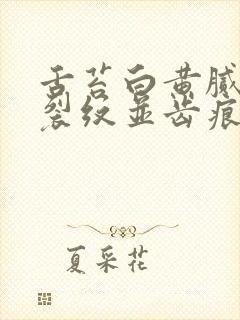 舌苔白黄腻
裂纹并齿痕
夏采花